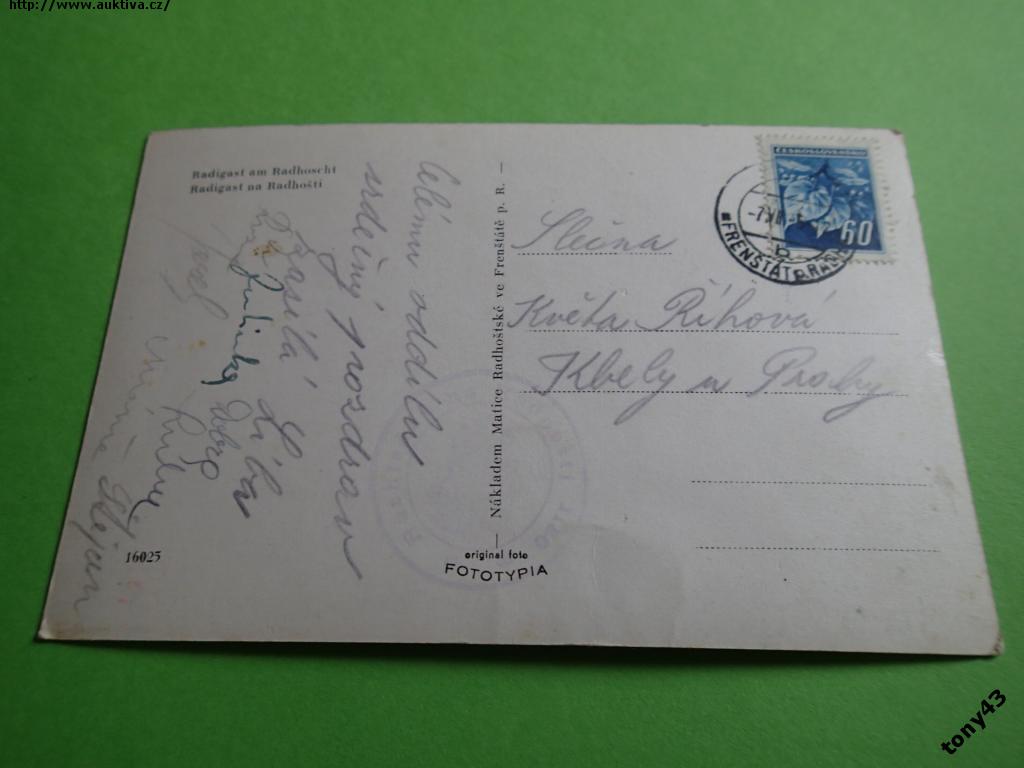 http://www.auktiva.cz/
Radigast am Radhoscht
Radigast na Radhošti
celému oddílu
srdečný pozdrav
zasílá Liba
Josef
16025
— Nákladem Matice Radhoštské ve Frenštátě p. R. —
original foto
FOTOTYPIA
ČESKOSLOVENSKO
60
FRENŠTÁT p. RADH
b
Slečna
Květa Říhová
Kbely u Prahy
tony43